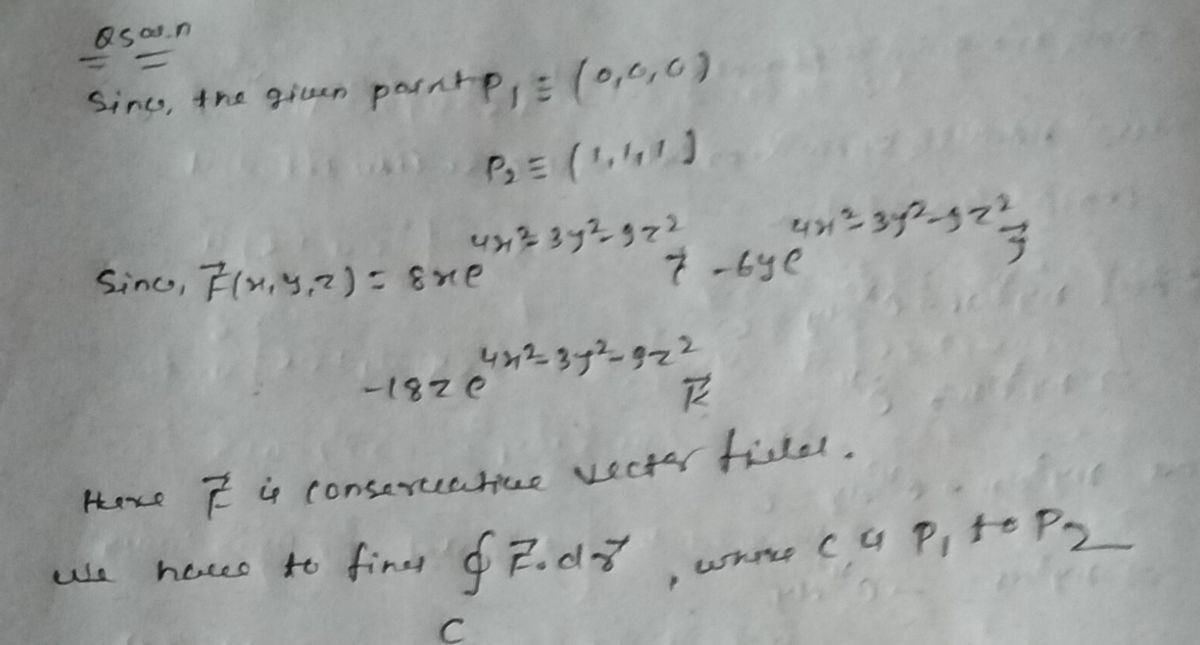 Qsan.n
Since, the given point P₁ ≡ (0,0,0)
P₂ ≡ (1,1,1)
Since, F⃗(x,y,z) = 8xe^{4x²-3y²-9z²} i⃗ - 6ye^{4x²-3y²-9z²} j⃗
-18ze^{4x²-3y²-9z²} k⃗
Here F⃗ is conservative vector field.
We have to find ∮_C F⃗.dr⃗, where C is P₁ to P₂